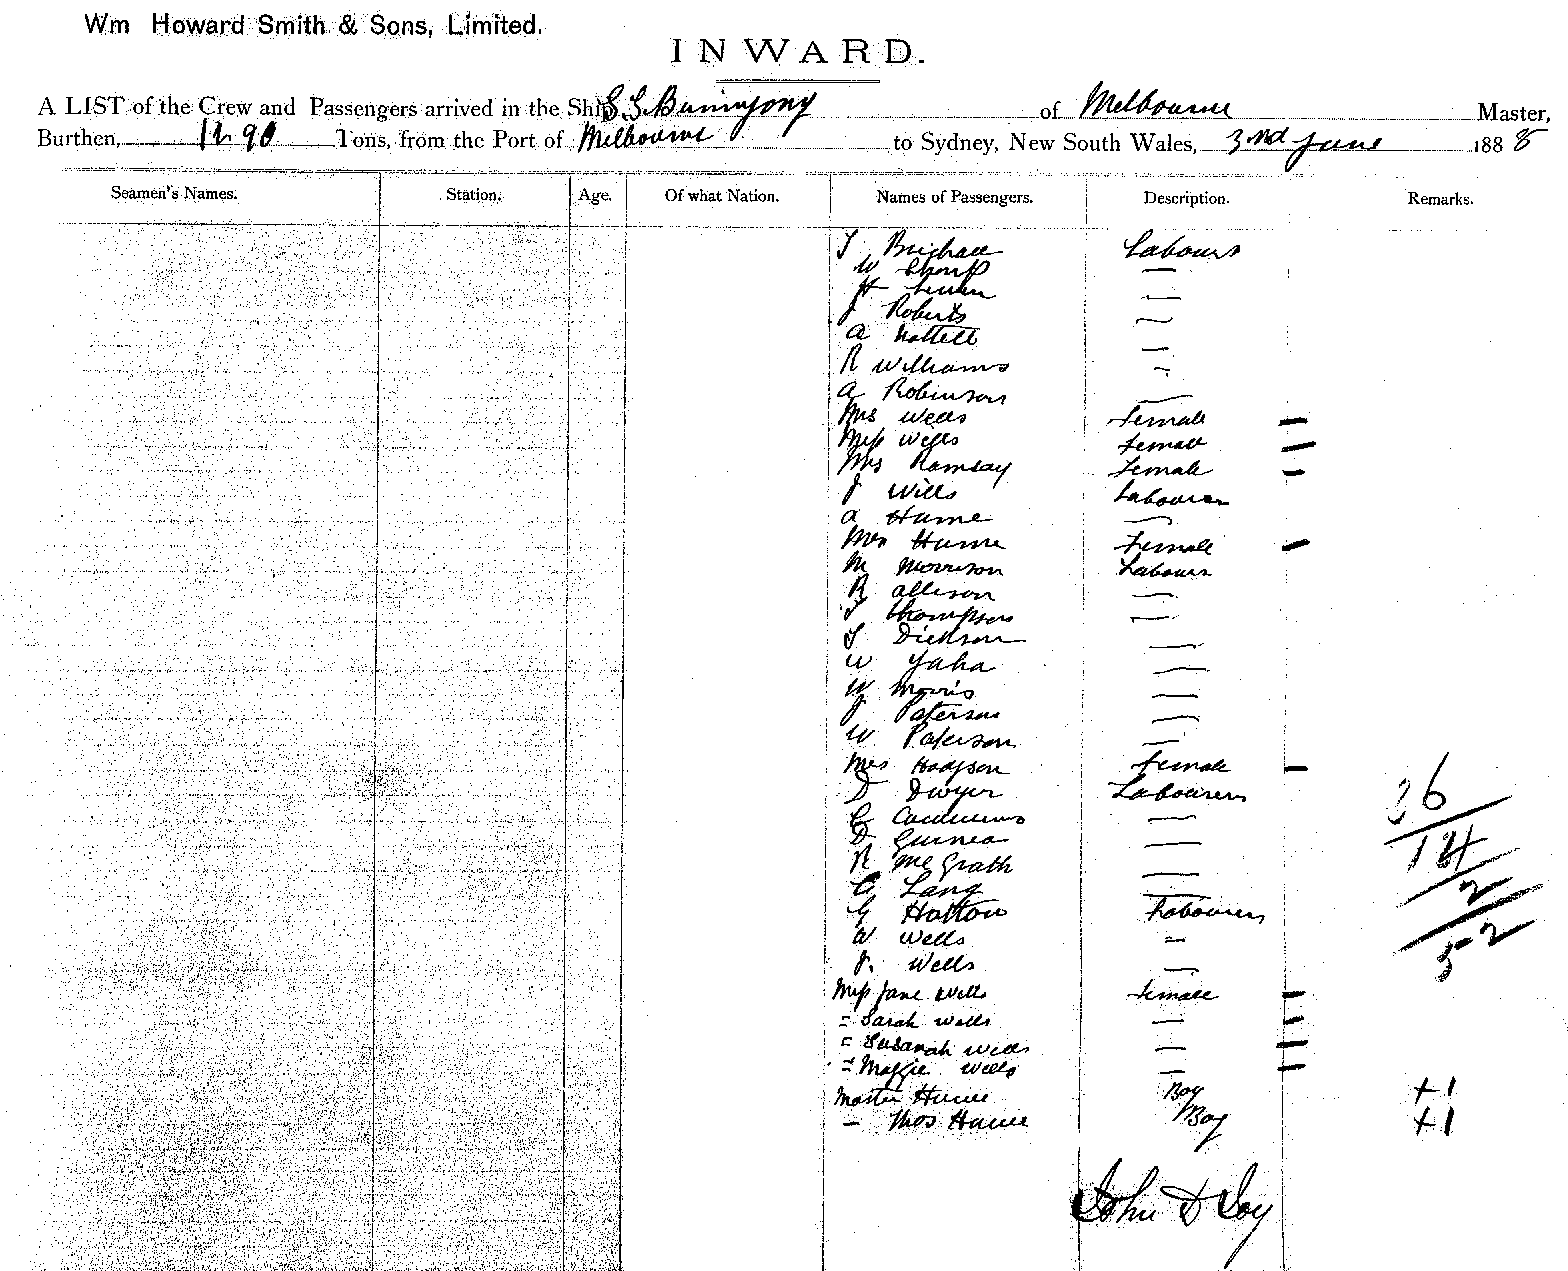 Wm Howard Smith & Sons, Limited.
INWARD.
A LIST of the Crew and Passengers arrived in the Ship S.S. Buninyong of Melbourne Master,
Burthen, Tons, from the Port of Melbourne to Sydney, New South Wales, 3rd June 1888
Seamen's Names. Station. Age. Of what Nation. Names of Passengers. Description. Remarks.
Labours
W Sharp —
H —
J Roberts —
A Nattell —
R Williams —
A Robinson —
Mrs Wells Female —
Miss Wells Female —
Mrs Ramsay Female —
J Wills Labourer
A Hume —
Mrs Hume Female —
M Morrison Labours
R Allison —
T Thompson —
T Dickson —
W —
W Morris —
J Paterson —
W Paterson —
Mrs Hodgson Female —
D Dwyer Labourers
C —
D Guinea —
R McGrath —
C Lang —
G Hatton Labourers
W Wells —
J. Wells —
Miss Jane Wells Female —
= Sarah Wells — —
= Susanah Wells — —
= Maggie Wells — —
Master Hume Boy +1
— Thos Hume Boy +1
36
14
2
52